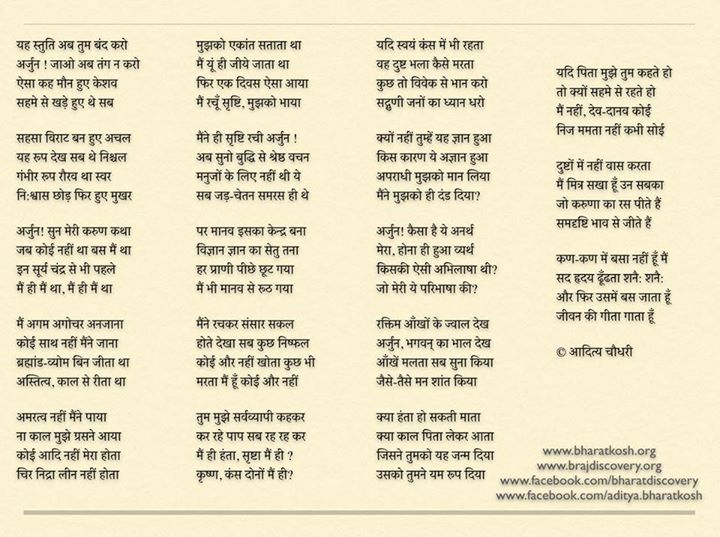 यह स्तुति अब तुम बंद करो
अर्जुन ! जाओ अब तंग न करो
ऐसा कह मौन हुए केशव
सहमे से खड़े हुए थे सब

सहसा विराट बन हुए अचल
यह रूप देख सब थे निश्चल
गंभीर रूप रौरव था स्वर
नि:श्वास छोड़ फिर हुए मुखर

अर्जुन! सुन मेरी करुण कथा
जब कोई नहीं था बस मैं था
इन सूर्य चंद्र से भी पहले
मैं ही मैं था, मैं ही मैं था

मैं अगम अगोचर अनजाना
कोई साथ नहीं मैंने जाना
ब्रह्मांड-व्योम बिन जीता था
अस्तित्व, काल से रीता था

अमरत्व नहीं मैंने पाया
ना काल मुझे ग्रसने आया
कोई आदि नहीं मेरा होता
चिर निद्रा लीन नहीं होता

मुझको एकांत सताता था
मैं यूं ही जीये जाता था
फिर एक दिवस ऐसा आया
मैं रचूँ सृष्टि, मुझको भाया

मैंने ही सृष्टि रची अर्जुन !
अब सुनो बुद्धि से श्रेष्ठ वचन
मनुजों के लिए नहीं थी ये
सब जड़-चेतन समरस ही थे

पर मानव इसका केन्द्र बना
विज्ञान ज्ञान का सेतु तना
हर प्राणी पीछे छूट गया
मैं भी मानव से रूठ गया

मैंने रचकर संसार सकल
होते देखा सब कुछ निष्फल
कोई और नहीं खोता कुछ भी
मरता मैं हूँ कोई और नहीं

तुम मुझे सर्वव्यापी कहकर
कर रहे पाप सब रह रह कर
मैं ही हंता, सृष्टा मैं ही ?
कृष्ण, कंस दोनों मैं ही?

यदि स्वयं कंस में भी रहता
वह दुष्ट भला कैसे मरता
कुछ तो विवेक से भान करो
सद्गुणी जनों का ध्यान धरो

क्यों नहीं तुम्हें यह ज्ञान हुआ
किस कारण ये अज्ञान हुआ
अपराधी मुझको मान लिया
मैंने मुझको ही दंड दिया?

अर्जुन! कैसा है ये अनर्थ
मेरा, होना ही हुआ व्यर्थ
किसकी ऐसी अभिलाषा थी?
जो मेरी ये परिभाषा की?

रक्तिम आँखों के ज्वाल देख
अर्जुन, भगवन् का भाल देख
आँखें मलता सब सुना किया
जैसे-तैसे मन शांत किया

क्या हंता हो सकती माता
क्या काल पिता लेकर आता
जिसने तुमको यह जन्म दिया
उसको तुमने यम रूप दिया

यदि पिता मुझे तुम कहते हो
तो क्यों सहमे से रहते हो
मैं नहीं, देव-दानव कोई
निज ममता नहीं कभी सोई

दुष्टों में नहीं वास करता
मैं मित्र सखा हूँ उन सबका
जो करुणा का रस पीते हैं
समदृष्टि भाव से जीते हैं

कण-कण में बसा नहीं हूँ मैं
सद हृदय ढूँढता शनै: शनै:
और फिर उसमें बस जाता हूँ
जीवन की गीता गाता हूँ

© आदित्य चौधरी

www.bharatkosh.org
www.brajdiscovery.org
www.facebook.com/bharatdiscovery
www.facebook.com/aditya.bharatkosh